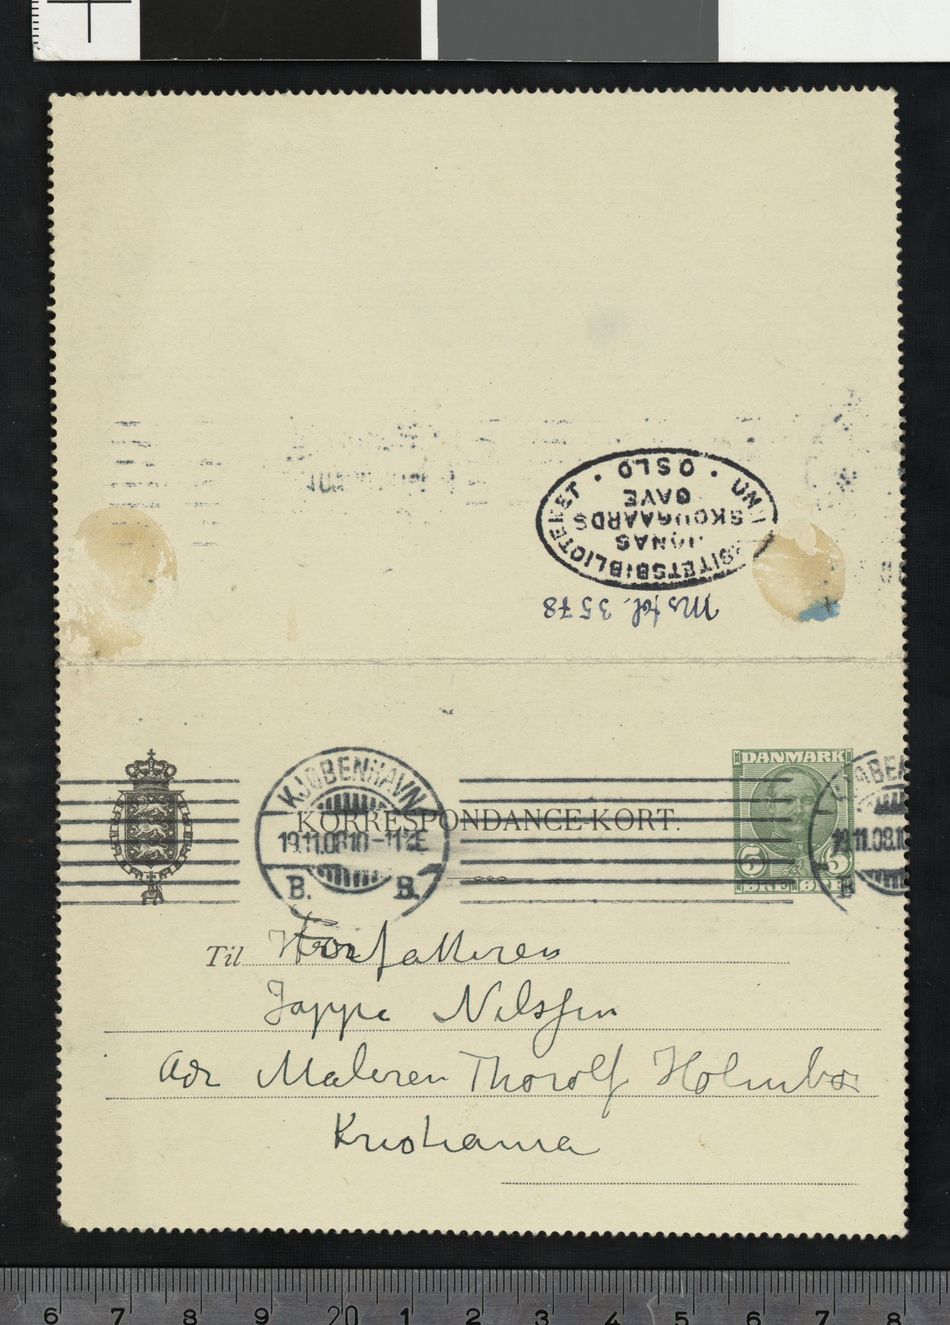 UNIVERSITETSBIBLIOTEKET • OSLO •
JONAS
SKOUGAARDS
GAVE
Ms fol. 3578
DANMARK
5 5
ØRE ØRE
KJØBENHAVN
19.11.08 10-11½E
B. B.
KJØBEN
19.11.08.10
B
KORRESPONDANCE-KORT.
Til Forfatteren
Jappe Nilssen
Adr Maleren Thorolf Holmboe
Kristiania
6 7 8 9 20 1 2 3 4 5 6 7 8